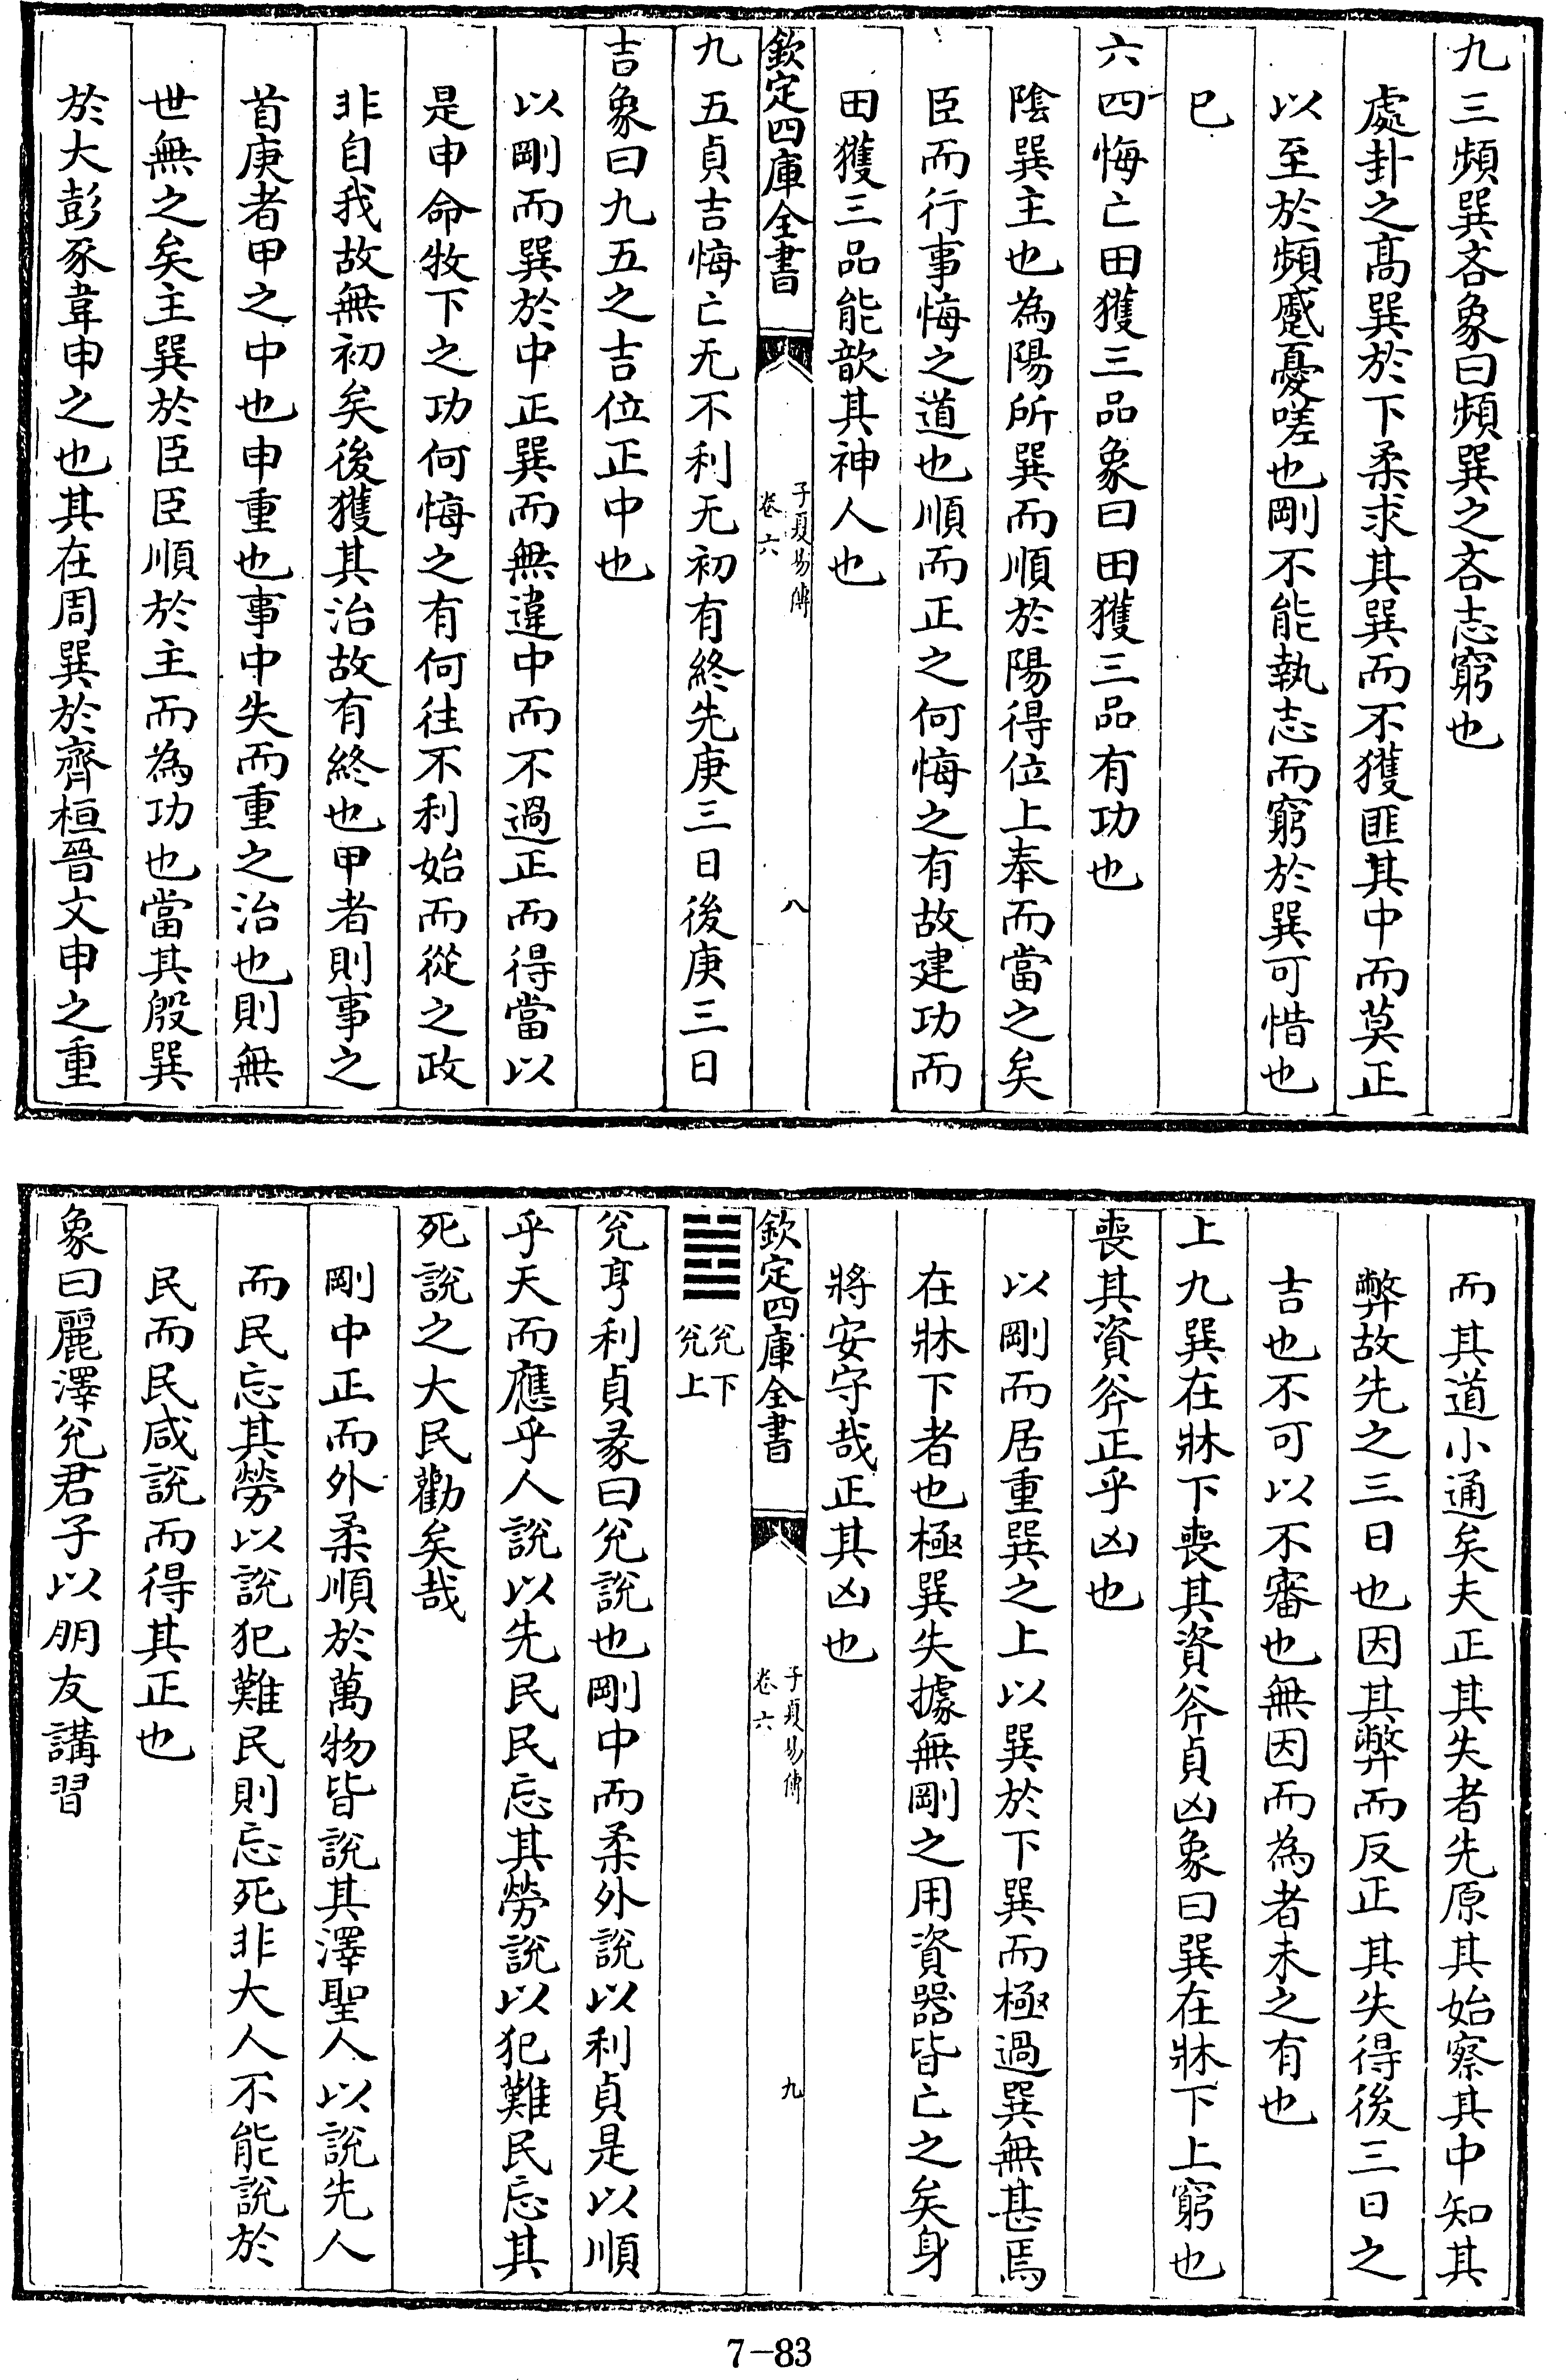 九三頻巽吝象曰頻巽之吝志窮也
處卦之髙巽於下柔求其巽而不獲匪其中而莫正
以至於頻蹙憂嗟也剛不能執志而窮於巽可惜也
已
六四悔亡田獲三品象曰田獲三品有功也
隂巽主也為陽所巽而順於陽得位上奉而當之矣
臣而行事悔之道也順而正之何悔之有故建功而
田獲三品能歆其神人也
欽定四庫全書
子夏易傳
卷六
八
九五貞吉悔亡无不利无初有終先庚三日後庚三日
吉象曰九五之吉位正中也
以剛而巽於中正巽而無違中而不過正而得當以
是申命牧下之功何悔之有何往不利始而從之政
非自我故無初矣後獲其治故有終也甲者則事之
首庚者甲之中也申重也事中失而重之治也則無
世無之矣主巽於臣臣順於主而為功也當其殷巽
於大彭豕韋申之也其在周巽於齊桓晉文申之重
而其道小通矣夫正其失者先原其始察其中知其
弊故先之三日也因其弊而反正其失得後三日之
吉也不可以不審也無因而為者未之有也
上九巽在牀下喪其資斧貞凶象曰巽在牀下上窮也
喪其資斧正乎凶也
以剛而居重巽之上以巽於下巽而極過巽無甚焉
在牀下者也極巽失據無剛之用資器皆亡之矣身
將安守哉正其凶也
欽定四庫全書
子夏易傳
卷六
九
䷹兊下
兊上
兊亨利貞彖曰兊說也剛中而柔外說以利貞是以順
乎天而應乎人說以先民民忘其勞說以犯難民忘其
死說之大民勸矣哉
剛中正而外柔順於萬物皆說其澤聖人以說先人
而民忘其勞以說犯難民則忘死非大人不能說於
民而民咸說而得其正也
象曰麗澤兊君子以朋友講習
7-83